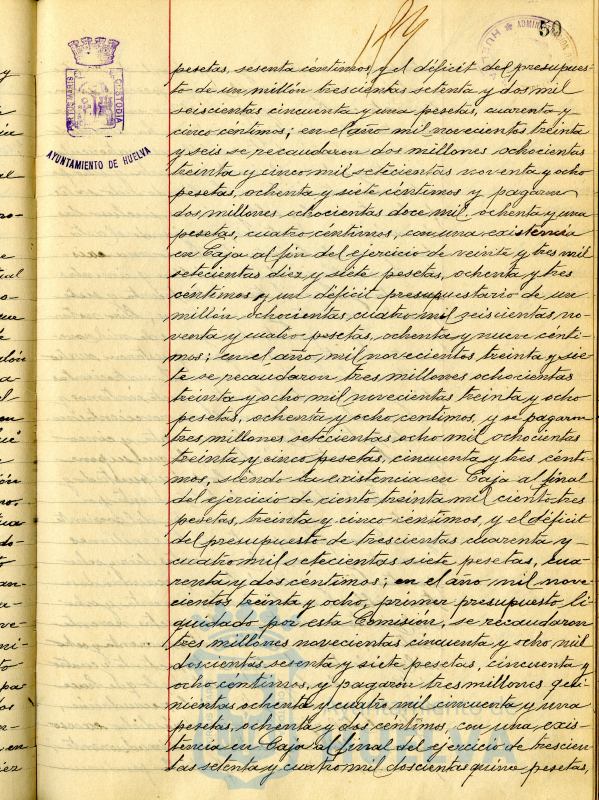 189
50
ADMINI
HUE
PORTUS MARIS
CUSTODIA
AYUNTAMIENTO DE HUELVA
pesetas, sesenta céntimos y el déficit del presupues-
to de un millón trescientas setenta y dos mil
seiscientas cincuenta y una pesetas, cuarenta y
cinco centimos; en el año mil novecientos treinta
y seis se recaudaron dos millones ochocientas
treinta y cinco mil setecientas noventa y ocho
pesetas, ochenta y siete céntimos y pagaron
dos millones, ochocientas doce mil ochenta y una
pesetas, cuatro céntimos, con una existencia
en Caja al fin del ejercicio de veinte y tres mil
setecientas diez y siete pesetas, ochenta y tres
céntimos y un déficit presupuestario de un
millón, ochocientas, cuatro mil seiscientas, no-
venta y cuatro pesetas, ochenta y nueve cénti-
mos; en el año, mil novecientos treinta y sie-
te se recaudaron tres millones ochocientas
treinta y ocho mil novecientas treinta y ocho
pesetas, ochenta y ocho centimos, y se pagaron
tres millones setecientas ocho mil ochocientas
treinta y cinco pesetas, cincuenta y tres cénti-
mos, siendo la existencia en Caja al final
del ejercicio de ciento treinta mil ciento tres
pesetas, treinta y cinco céntimos, y el déficit
del presupuesto de trescientas cuarenta y
cuatro mil setecientas siete pesetas, cua-
renta y dos céntimos; en el año mil nove-
cientos treinta y ocho, primer presupuesto li-
quidado por esta Comisión, se recaudaron
tres millones novecientas cincuenta y ocho mil
doscientas sesenta y siete pesetas, cincuenta y
ocho céntimos, y pagaron tres millones qui-
nientas ochenta y cuatro mil cincuenta y una
pesetas, ochenta y dos céntimos, con una exis-
tencia en Caja al final del ejercicio de trescien-
tas setenta y cuatro mil doscientas quince pesetas,
HUELVA